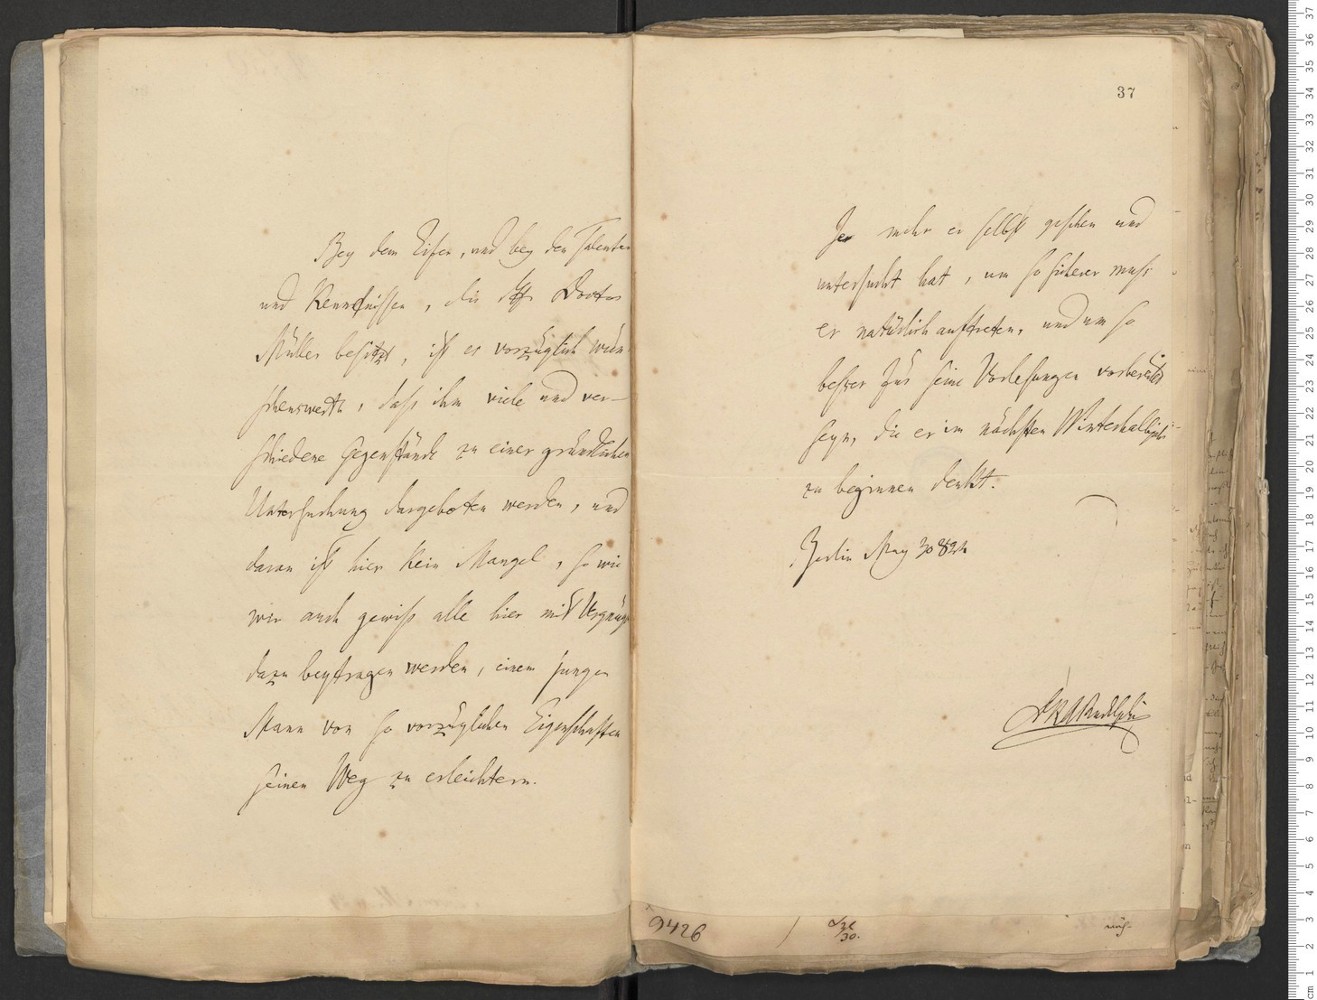 Bey dem Eifer, und bey den Talenten
und Kenntnissen, die H. Doctor
Müller besitzt, ist es vorzüglich wün-
schenswerth, dass ihm viele und ver-
schiedene Gegenstände zu einer gründlichen
Untersuchung dargeboten werden, und
daran ist hier kein Mangel, so wie
wir auch gewiss alle hier mit Vergnügen
dazu beytragen werden, einem jungen
Mann von so vorzüglichen Eigenschaften
seinen Weg zu erleichtern.
37
Je mehr er selbst gesehen und
untersucht hat, um so sicherer muss
er natürlich auftreten, und um so
besser für seine Vorlesungen vorbereitet
seyn, die er im nächsten Winterhalbjahr
zu beginnen denkt.
Berlin May 30 824
D. K. A. Rudolphi
9426